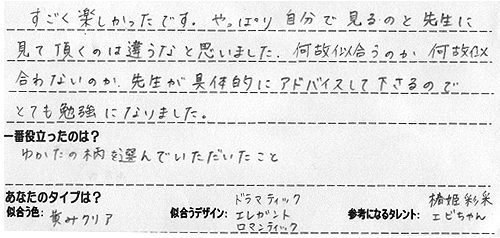 すごく楽しかったです。やっぱり自分で見るのと先生に
見て頂くのは違うなと思いました。何故似合うのか何故似
合わないのか、先生が具体的にアドバイスして下さるので
とても勉強になりました。
一番役立ったのは?
ゆかたの柄を選んでいただいたこと
あなたのタイプは?
似合う色: 黄みクリア
似合うデザイン: ドラマティック
エレガント
ロマンティック
参考になるタレント: 椿姫彩菜
エビちゃん